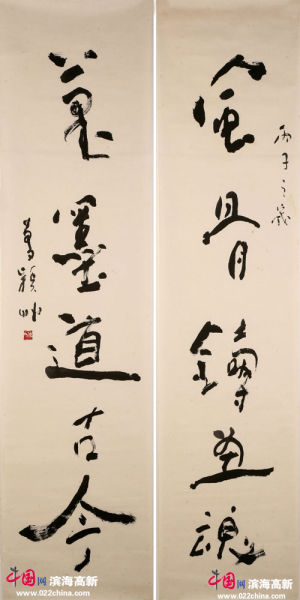 風骨鑄畫魂
丙子之歲
筆墨道古今
中国网 滨海高新
www.022china.com
中国网 滨海高新
www.022china.com